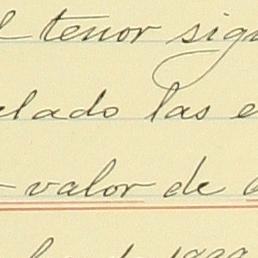 l tenor sigu
elado las e
valor de